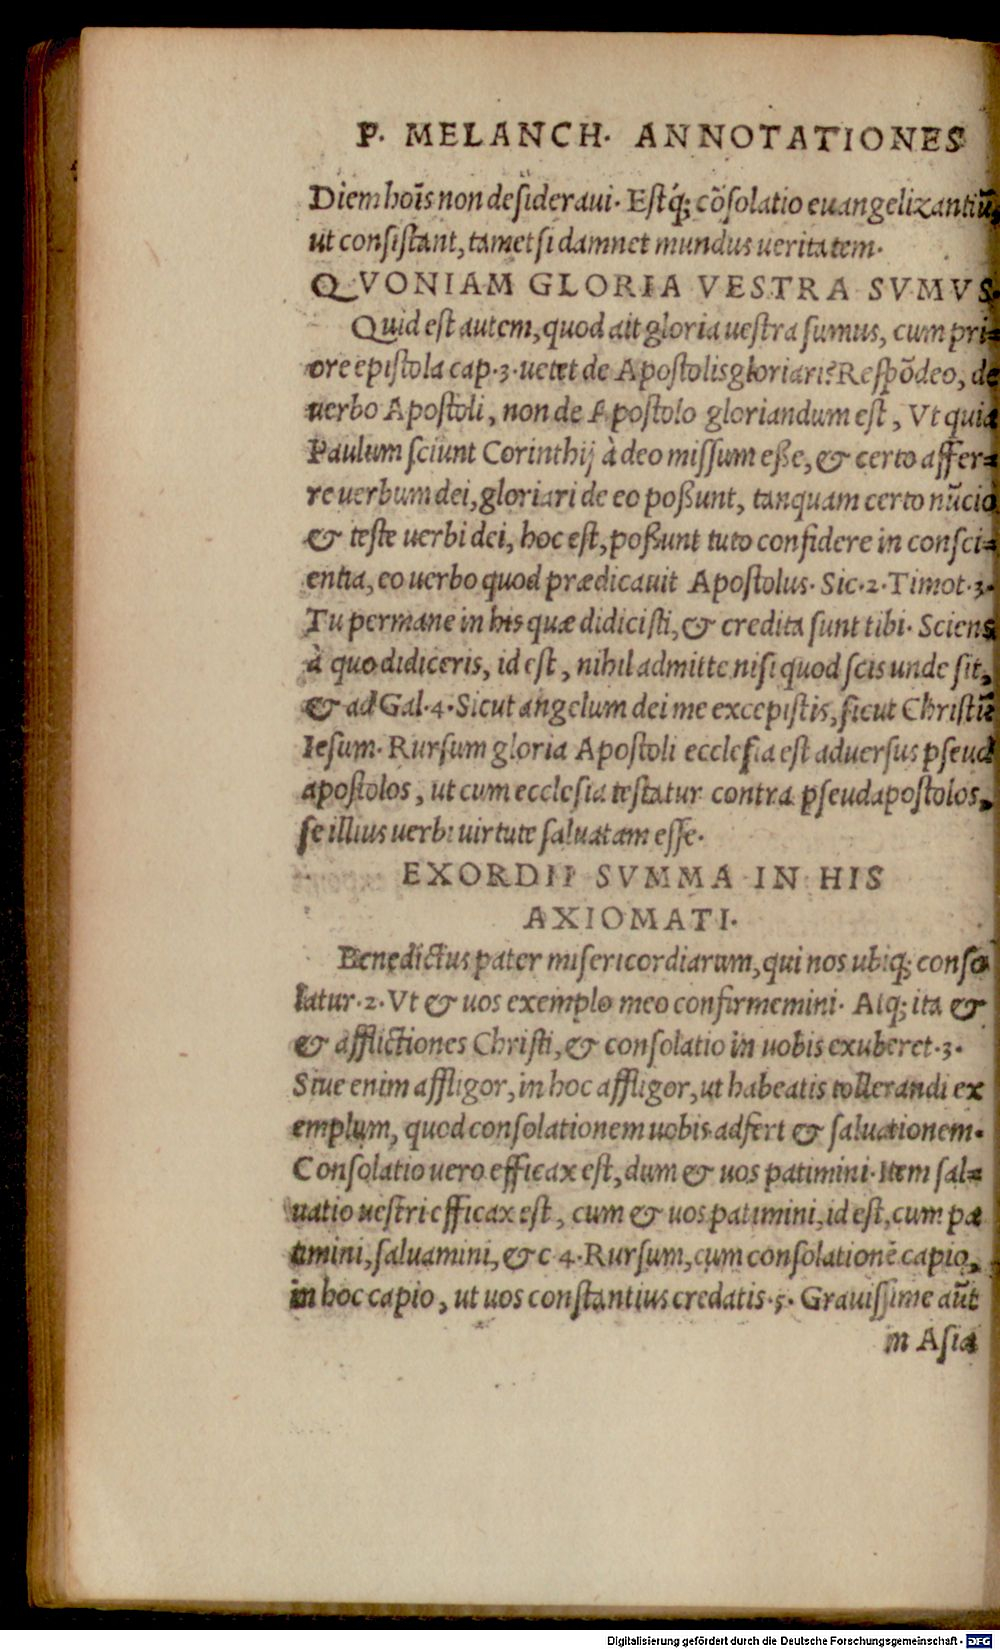 P. MELANCH. ANNOTATIONES
Diem hoīs non desideraui. Estq́; cōsolatio euangelizantiū,
ut consistant, tametsi damnet mundus ueritatem.
QVONIAM GLORIA VESTRA SVMVS.
Quid est autem, quod ait gloria uestra sumus, cum pri=
ore epistola cap.3.uetet de Apostolis gloriari? Respōdeo, de
uerbo Apostoli, non de Apostolo gloriandum est, Vt quia
Paulum sciunt Corinthij à deo missum eße, & certo affer=
re uerbum dei, gloriari de eo poßunt, tanquam certo nūcio
& teste uerbi dei, hoc est, poßunt tuto confidere in consci=
entia, eo uerbo quod prædicauit Apostolus. Sic.2.Timot.3.
Tu permane in his quæ didicisti, & credita sunt tibi. Sciens
à quo didiceris, id est, nihil admitte nisi quod scis unde sit,
& ad Gal.4.Sicut angelum dei me excepistis, sicut Christū
Iesum. Rursum gloria Apostoli ecclesia est aduersus pseud
apostolos, ut cum ecclesia testatur contra pseudapostolos,
se illius uerbi uirtute saluatam esse.
EXORDII SVMMA IN HIS
AXIOMATI.
Benedictus pater misericordiarum, qui nos ubiq; conso
latur.2.Vt & uos exemplo meo confirmemini. Atq; ita &
& afflictiones Christi, & consolatio in uobis exuberet.3.
Siue enim affligor, in hoc affligor, ut habeatis tollerandi ex
emplum, quod consolationem uobis adfert & saluationem.
Consolatio uero efficax est, dum & uos patimini. Item sal=
uatio uestri efficax est, cum & uos patimini, id est, cum pa
timini, saluamini, &c 4.Rursum, cum consolationē capio,
in hoc capio, ut uos constantius credatis.5. Grauissime aūt
in Asia
Digitalisierung gefördert durch die Deutsche Forschungsgemeinschaft - DFG